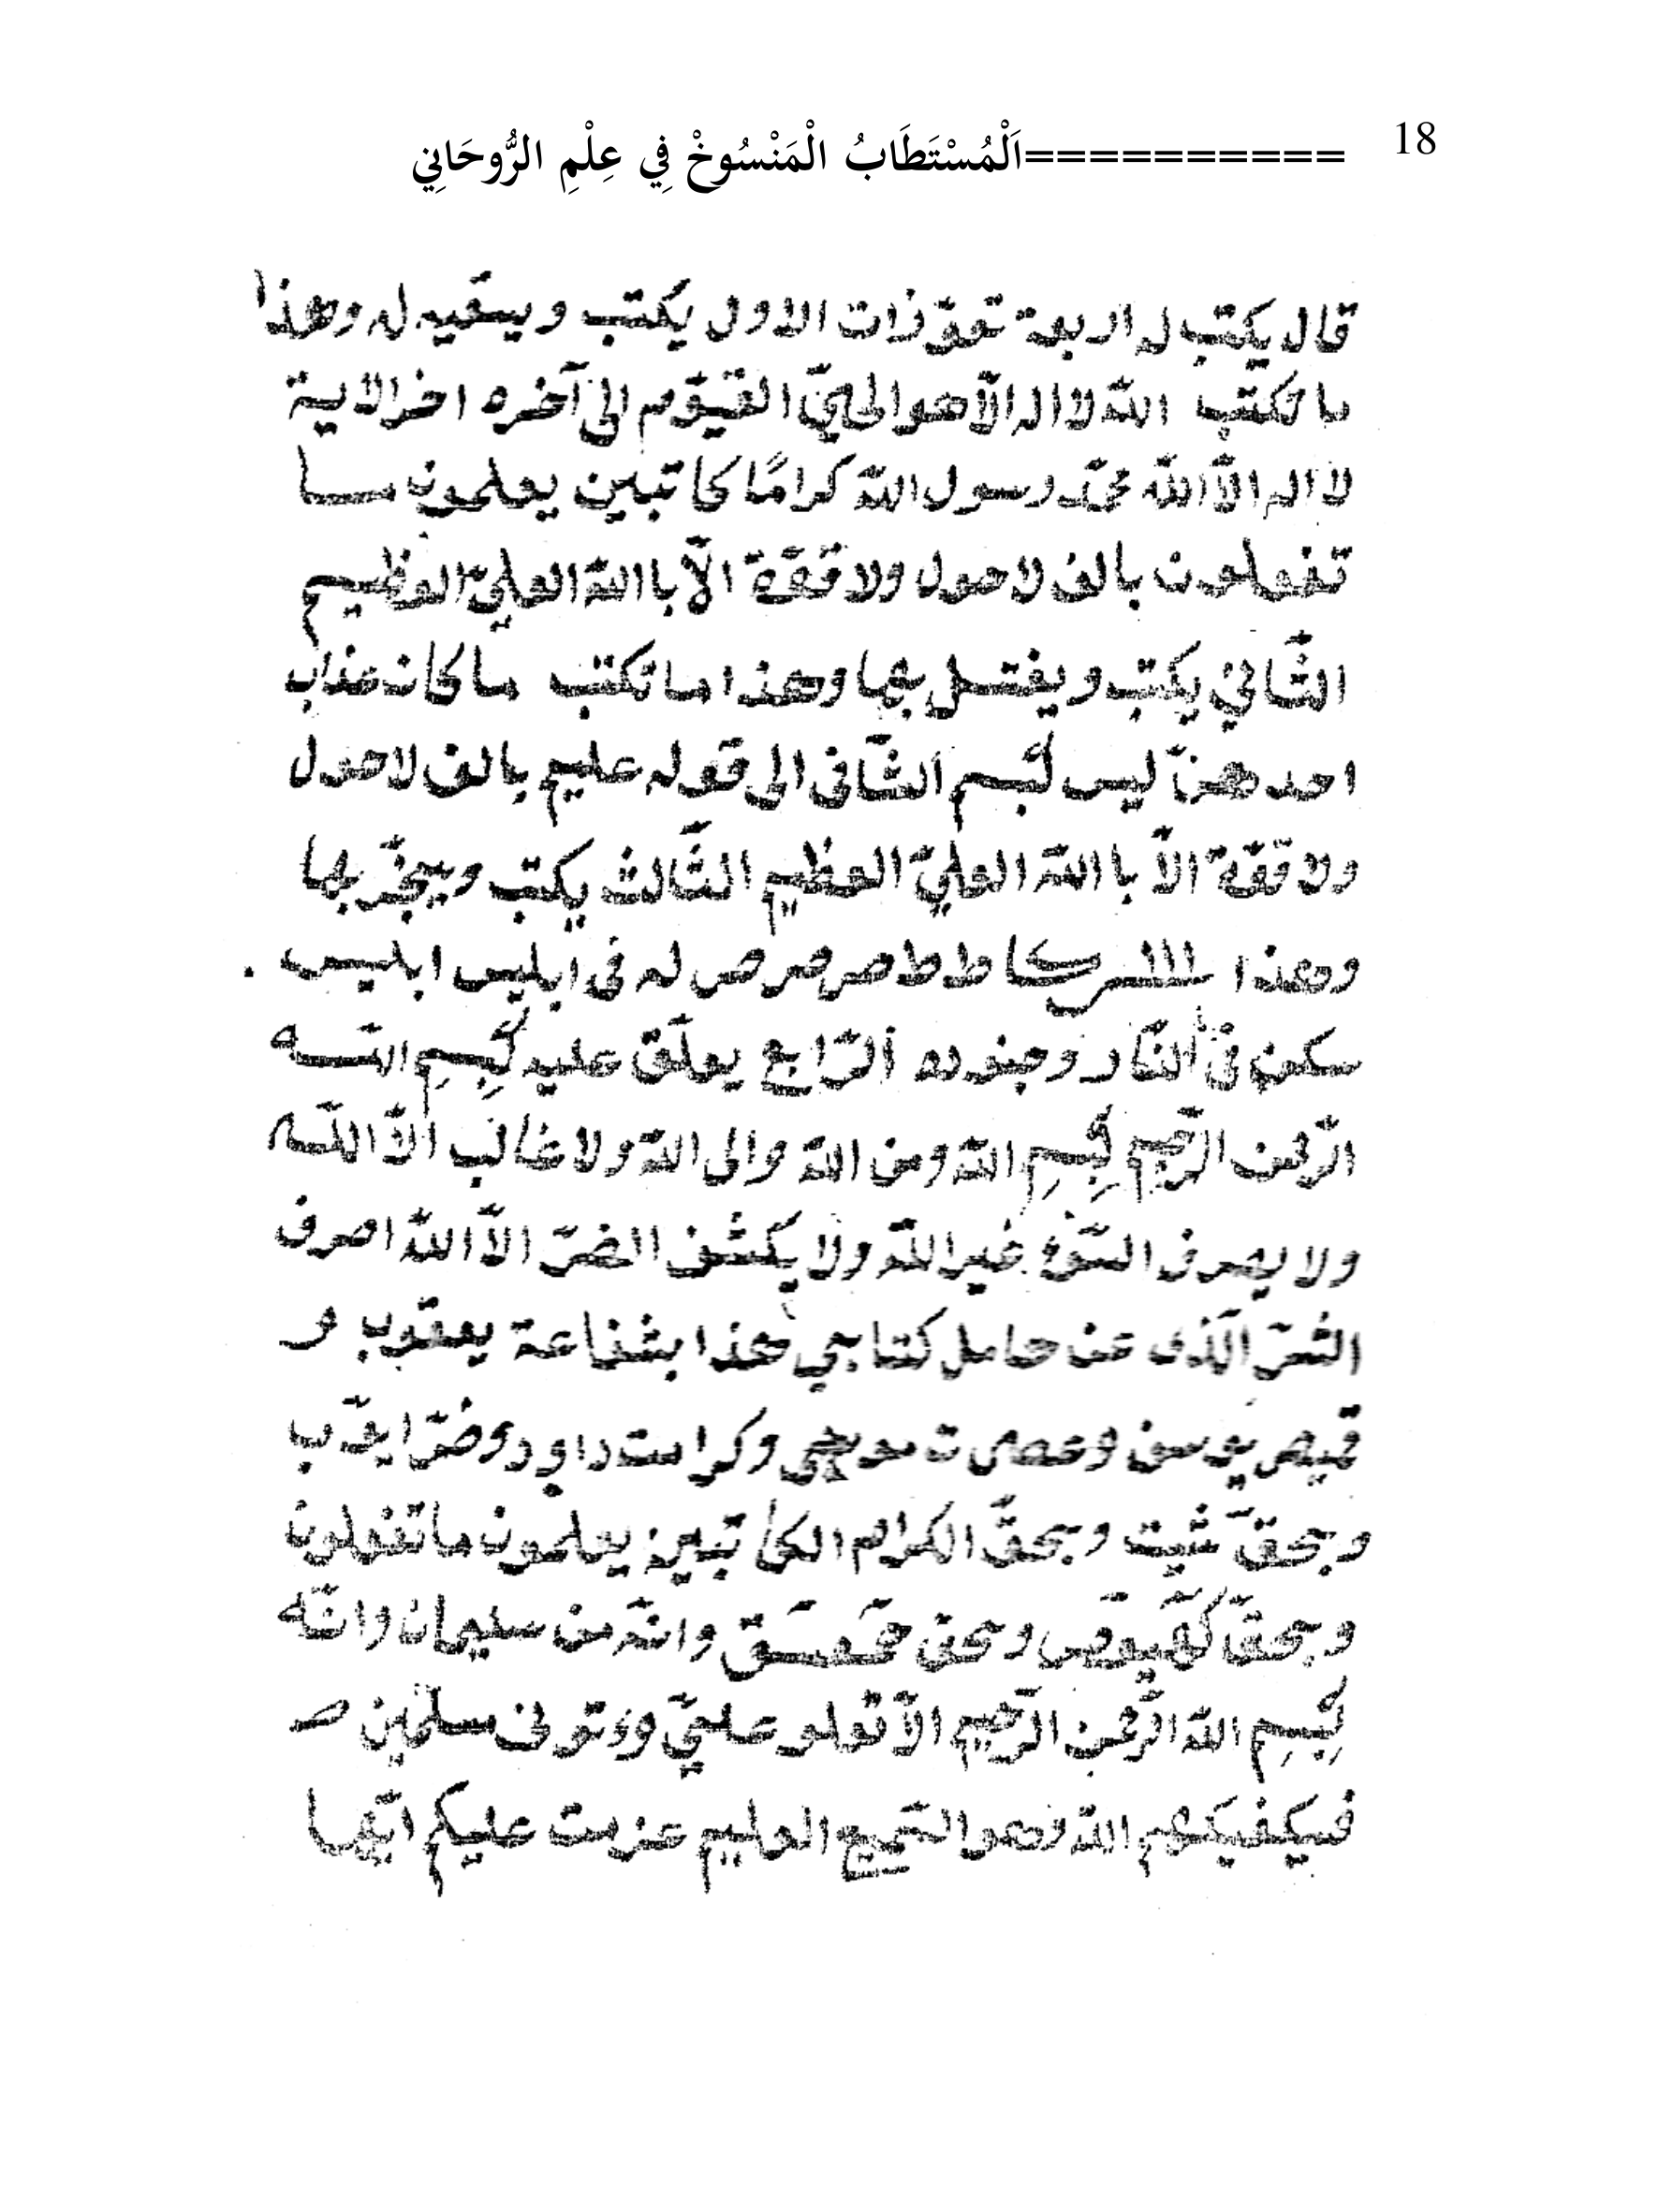 18
==========اَلْمُسْتَطَابُ الْمَنْسُوخْ فِي عِلْمِ الرُّوحَانِي
قال يكتب له اربعة تعوّذات الاول يكتب ويسقيه له وهذا
ما تكتب اللّه لا اله الّا هو الحيّ القيّوم الى آخره اخر الاية
لا اله الّا اللّه محمّد رسول اللّه كرامًا كاتبين يعلمون مــا
تفعلون بالف لا حول ولا قوّة الّا با اللّه العليّ العظيم
الثّاني يكتب ويغتسل بها وهذا ما تكتب ما كان عذاب
احد هنّ ليس لبسم الثّانى الى قوله عليم بالف لا حول
ولا قوّة الّا با اللّه العليّ العظيم الثّالث يكتب ويبخّر بها
وهذا ط ط ص ص ص له فى ابليس ابليس .
سكن فى النّار وجنوده الرّابع يعلّق عليه بِسِمِ اللّــه
الرّحمن الرّحيم بِسِمِ اللّه ومن اللّه والى اللّه ولا غالب الّا اللّــه
ولا يصرف السّوء غير اللّه ولا يكشف الضرّ الّا اللّه اصرف
الشرّ الّذى عن حامل كتابي هذا بشفاعة يعقوب و
قميص يوسف وعصات موسى وكرامت داود وضرّ ايّوب
وبحقّ شيت وبحقّ الكرام الكاتبين يعلمون ما تفعلون
وبحقّ كهيعص وبحق حمعسق وانّه من سليمان وانّه
بِسِمِ اللّه الرّحمن الرّحيم الّا تعلو عليّ وءتونى مسلمين ص
فسيكفيكهم اللّه وهو السّميع العليم عزمت عليكم ايّها